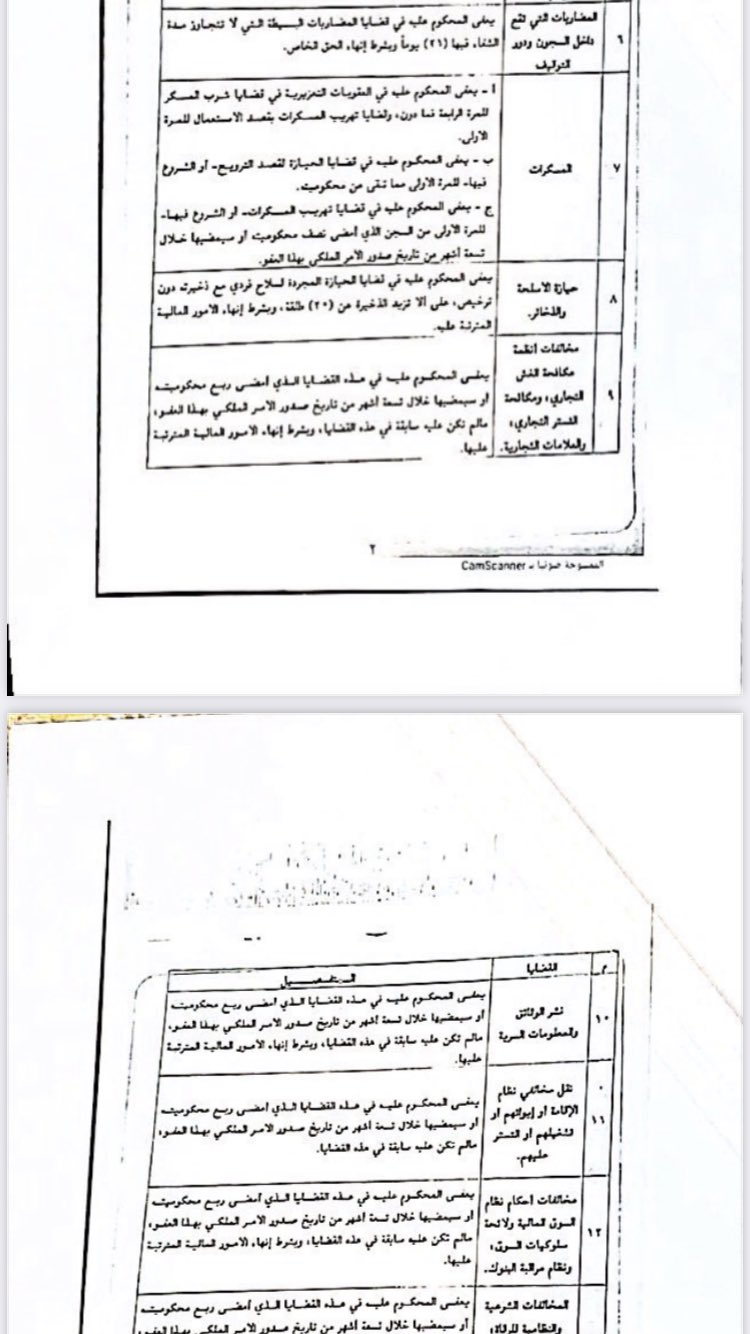 المضاربات التي تقع
داخل السجون ودور
التوقيف
٦
يعفى المحكوم عليه في قضايا المضاربات البسيطة التي لا تتجاوز مدة
الشفاء فيها (٢١) يوماً وبشرط إنهاء الحق الخاص.
٧
المسكرات
أ - يعفى المحكوم عليه في العقوبات التعزيرية في قضايا شرب المسكر
للمرة الرابعة فما دون، وقضايا تهريب المسكرات بقصد الاستعمال للمرة
الأولى.
ب - يعفى المحكوم عليه في قضايا الحيازة لقصد الترويج- أو الشروع
فيها- للمرة الأولى مما تبقى من محكوميته.
ج - يعفى المحكوم عليه في قضايا تهريب المسكرات- أو الشروع فيها-
للمرة الأولى من السجن الذي أمضى نصف محكوميته أو سيمضيها خلال
تسعة أشهر من تاريخ صدور الأمر الملكي بهذا العفو.
٨
حيازة الأسلحة
والذخائر.
يعفى المحكوم عليه في قضايا الحيازة المجردة لسلاح فردي مع ذخيرته دون
ترخيص، على ألا تزيد الذخيرة عن (٢٠) طلقة، وبشرط إنهاء الأمور المالية
المترتبة عليه.
٩
مخالفات أنظمة
مكافحة الغش
التجاري، ومكافحة
التستر التجاري،
والعلامات التجارية.
يعفى المحكوم عليه في هذه القضايا الذي أمضى ربع محكوميته
أو سيمضيها خلال تسعة أشهر من تاريخ صدور الأمر الملكي بهذا العفو،
مالم تكن عليه سابقة في هذه القضايا، وبشرط إنهاء الأمور المالية المترتبة
عليها.
٢
الممسوحة ضوئيا بـ CamScanner
م
القضايا
التفصيل
١٠
نشر الوثائق
والمعلومات السرية
يعفى المحكوم عليه في هذه القضايا الذي أمضى ربع محكوميته
أو سيمضيها خلال تسعة أشهر من تاريخ صدور الأمر الملكي بهذا العفو،
مالم تكن عليه سابقة في هذه القضايا، وبشرط إنهاء الأمور المالية المترتبة
عليها.
١١
نقل مخالفي نظام
الإقامة أو إيوائهم أو
تشغيلهم أو التستر
عليهم.
يعفى المحكوم عليه في هذه القضايا الذي أمضى ربع محكوميته
أو سيمضيها خلال تسعة أشهر من تاريخ صدور الأمر الملكي بهذا العفو،
مالم تكن عليه سابقة في هذه القضايا.
١٢
مخالفات أحكام نظام
السوق المالية ولائحة
سلوكيات السوق،
ونظام مراقبة البنوك.
يعفى المحكوم عليه في هذه القضايا الذي أمضى ربع محكوميته
أو سيمضيها خلال تسعة أشهر من تاريخ صدور الأمر الملكي بهذا العفو،
مالم تكن عليه سابقة في هذه القضايا، وبشرط إنهاء الأمور المالية المترتبة
عليها.
المخالفات الشرعية
والنظامية للرقاة،
يعفى المحكوم عليه في هذه القضايا الذي أمضى ربع محكوميته
أو سيمضيها خلال تسعة أشهر من تاريخ صدور الأمر الملكي بهذا العفو،